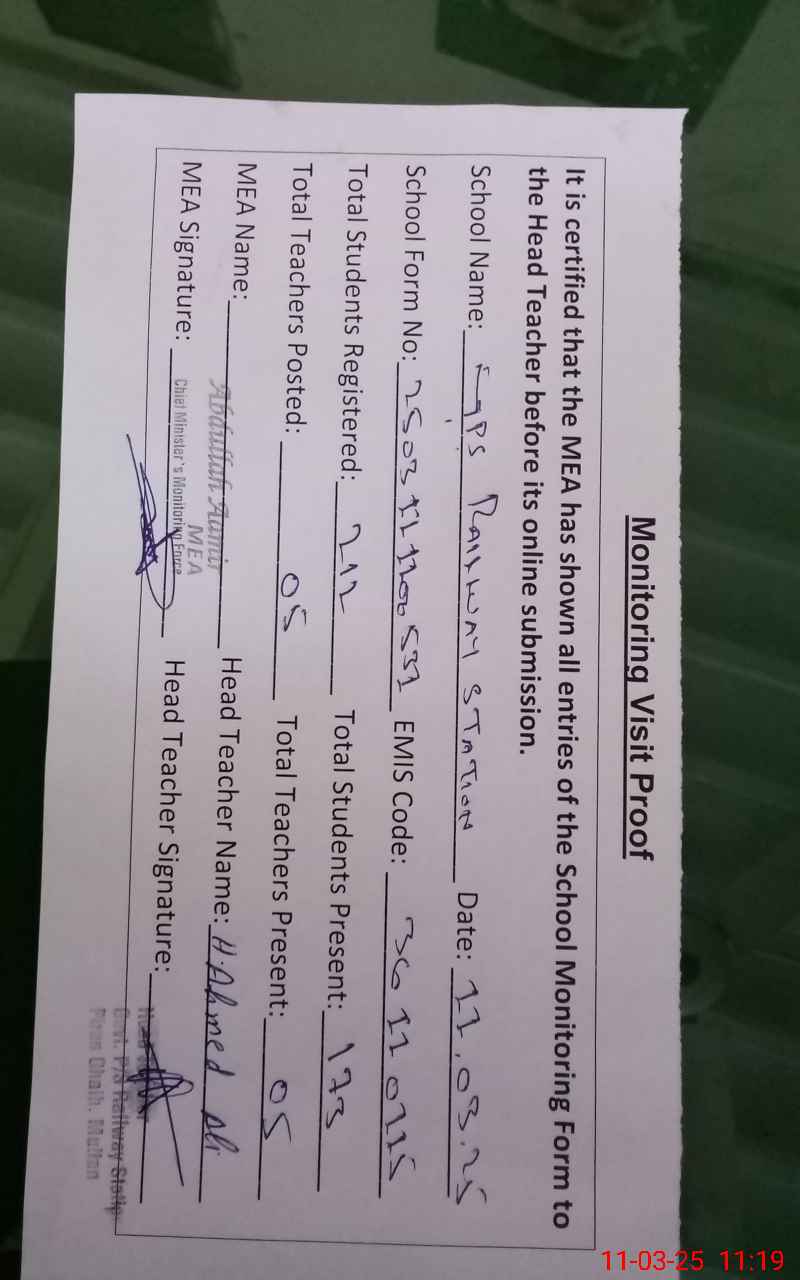 Monitoring Visit Proof
It is certified that the MEA has shown all entries of the School Monitoring Form to
the Head Teacher before its online submission.
School Name: GPS RAILWAY STATION Date: 11.03.25
School Form No: EMIS Code: 36110115
Total Students Registered: 212 Total Students Present: 173
Total Teachers Posted: 05 Total Teachers Present: 05
MEA Name: Abdullah Aamir Head Teacher Name: H. Ahmed Ali
MEA
MEA Signature: Chief Minister's Monitoring Force Head Teacher Signature:
Govt. P/S Railway Station
Multan
11-03-25 11:19